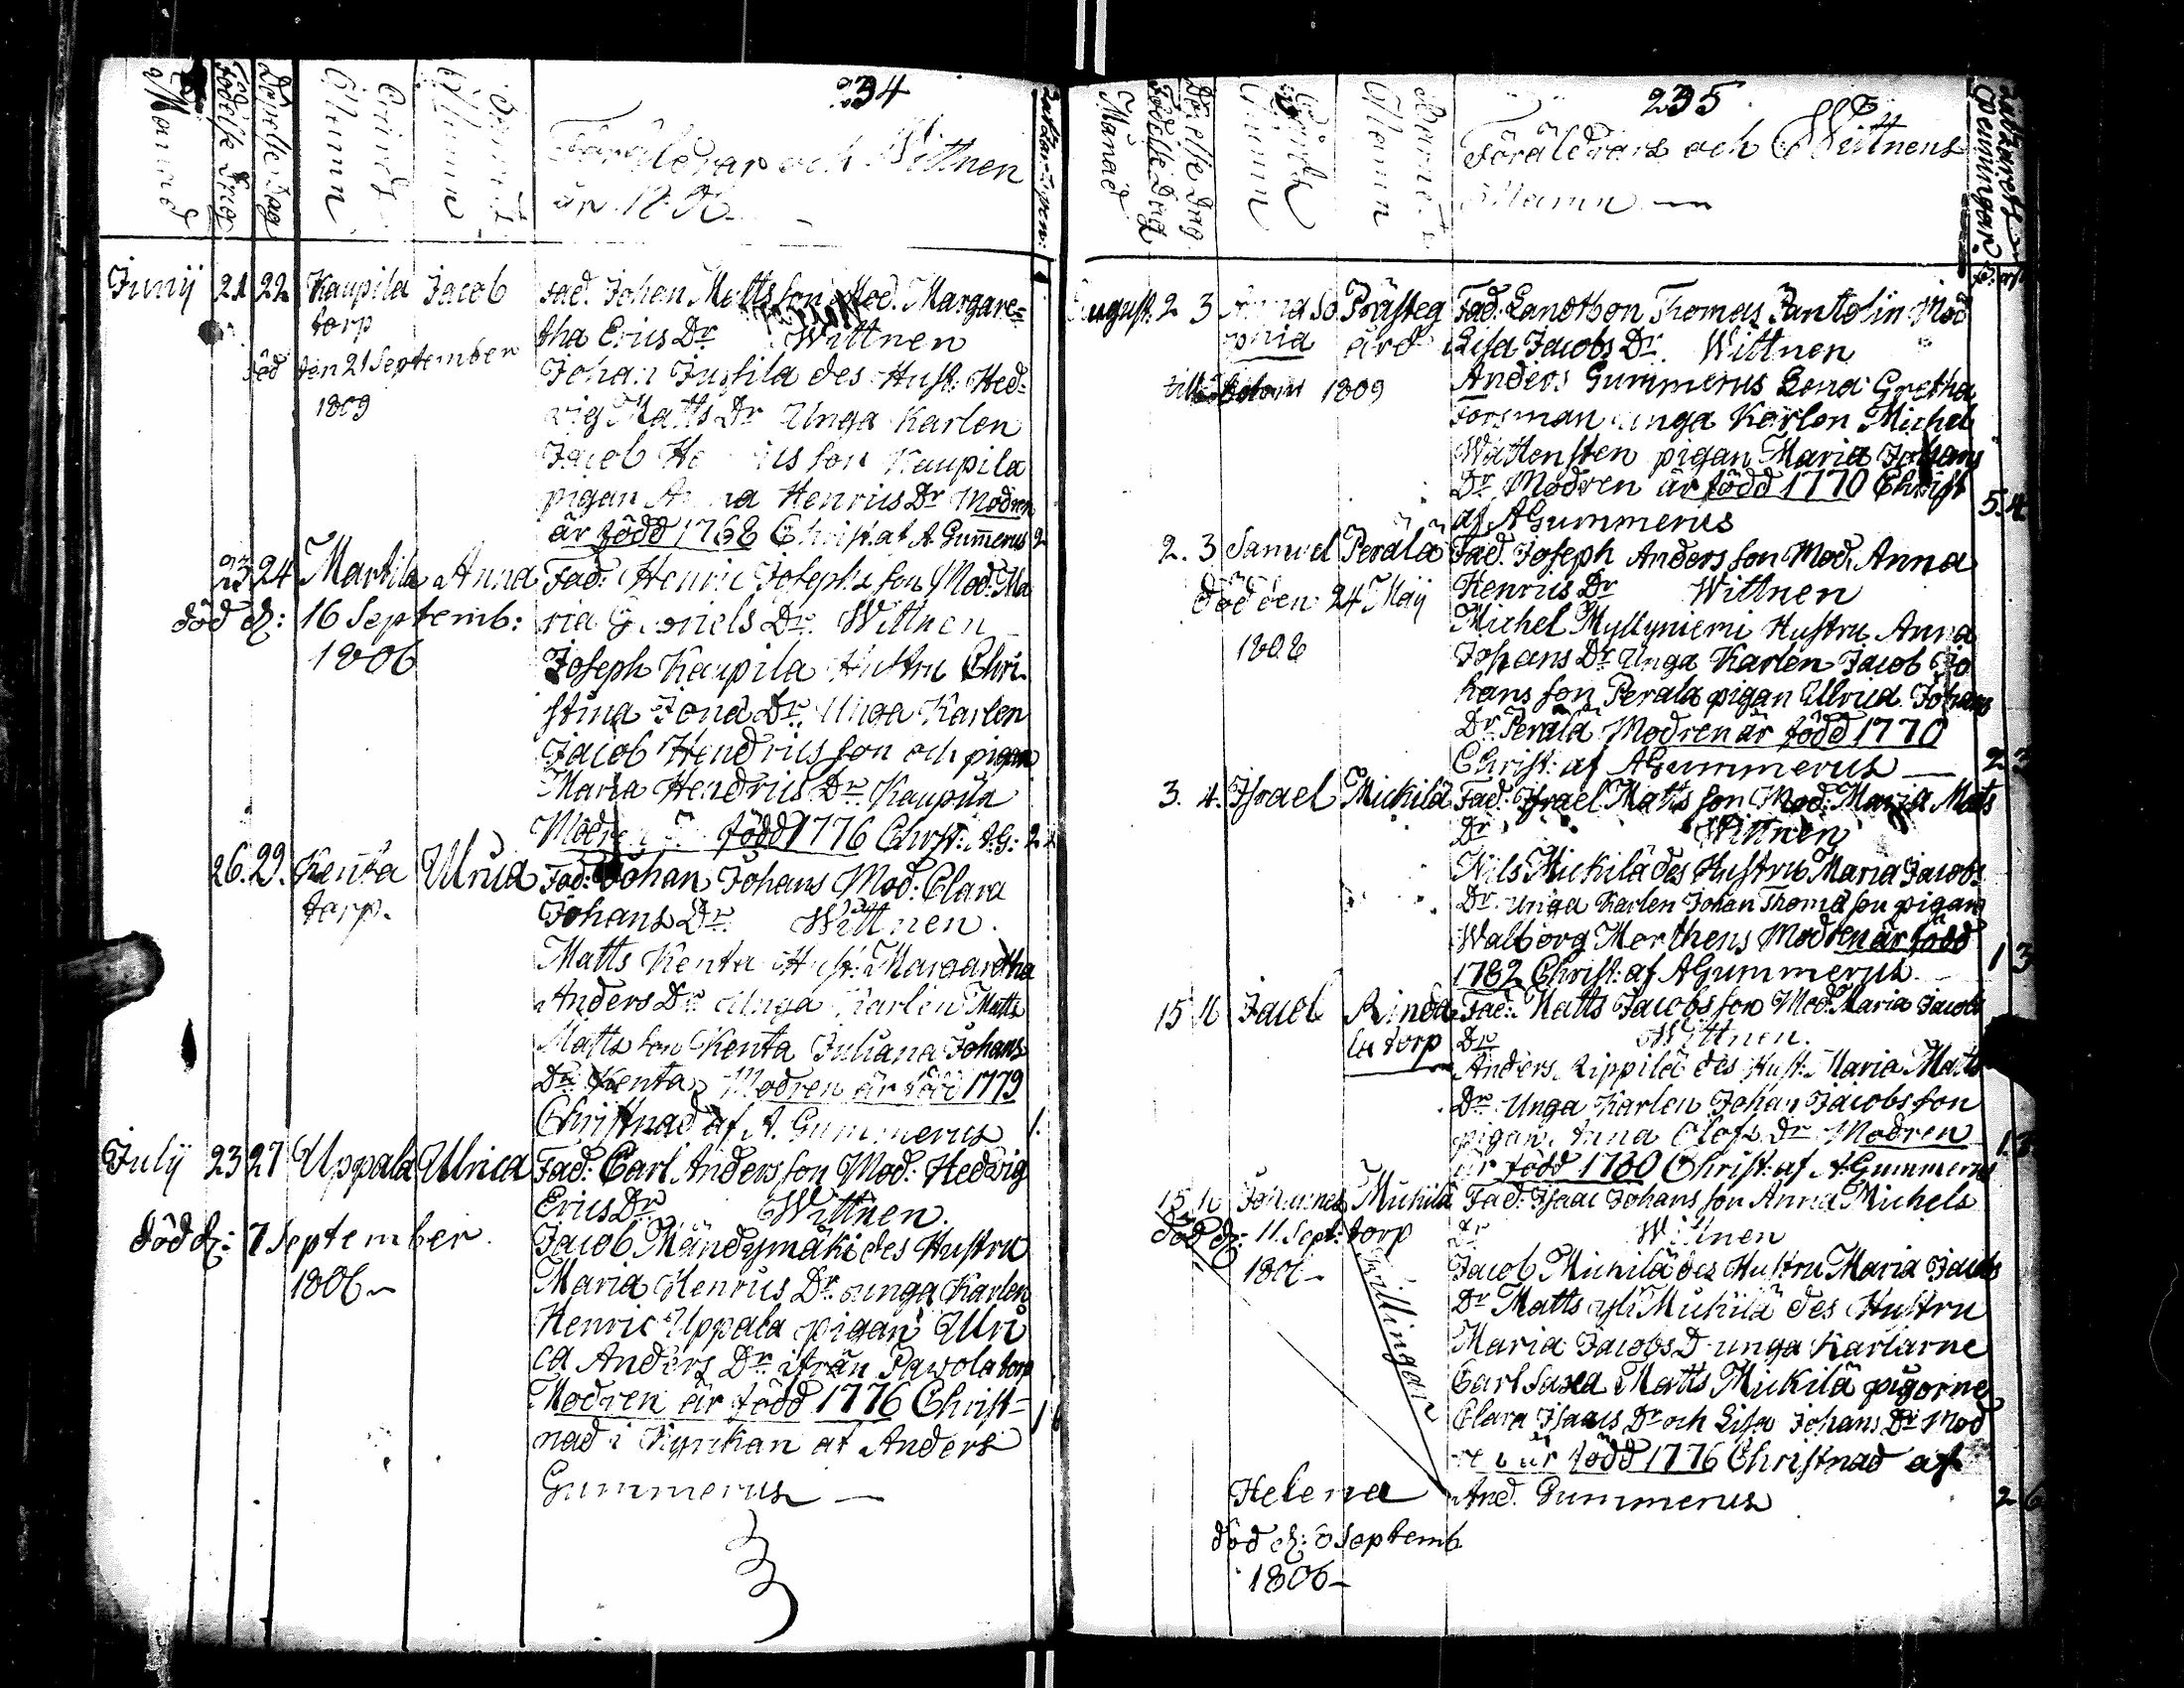 234
Månad
Födelse Dag
Döpelse Dag
Namn
Barnets
Namn
Föräldrar och Wittnen
år 1806
Junij 21 22 Kaupila Jacob Fad. Johan Matts son Mod. Margare=
torp tha Erics Dr Wittnen
död den 21 September Johan Jussila des Hust: Hed=
1809 vig Matts Dr Unga Karlen
Jacob son Kaupila
pigan Henrics Dr Modren
är född 1768 Christ. af A Gum̄erus 2
23 24 Martila Anna Fad: Henric Josephs son Mod: Ma
död d: 16 Septemb: ria Dr. Wittnen
1806 Joseph Kaupila Hustru Chri
stina Dr. Unga Karlen
Jacob Hendrics son och pigan
Maria Hendrics Dr. Kaupila
född 1776 Christ: A: G: 2
26. 29. Kenta Ulrica Fad: Johan Johans Mod: Clara
torp. Johans Dr. Wittnen.
Matts Kenta Hust: Margaretha
Anders Dr Unga Karlen Matts
Matts son Kenta Juliana Johans
Dr Kenta Modren är född 1779
Christnad af A. Gummerus 1.
July 23 27 Uppala Ulrica Fad: Carl Anders son Mod: Hedvig
Erics Dr. Wittnen.
död d: 7 September Jacob Mändymäki des Hustru
1806 Maria Henrics Dr. unga Karlen
Henric Uppala pigan Ulri
ca Anders Dr ifrån Pavola torp
Modren är född 1776 Christ=
nad i Kyrckan af Anders
Gummerus
235
Månad
Födelse Dag
Döpelse Dag
Namn
Barnets
Namn
Föräldrars och Wittnens
Namn
Penningar.
August. 2 3 Anna So Prästeg Fad. Thomas Mod
phia ård Lisa Jacobs Dr. Wittnen
1809 Anders Gummerus Lena Gretha
Forsman unga Karlen Michel
Wattensten pigan Maria Johans
Dr. Modren är född 1770 Christ
af A Gummerus 5.4
2. 3 Samuel Perälä Fad. Joseph Anders son Mod. Anna
död den 24 Maij Henrics Dr Wittnen
1808 Michel Myllyniemi Hustru Anna
Johans Dr. Unga Karlen Jacob Jo
hans son Perälä pigan Ulrica Johans
Dr. Perälä Modren är född 1770
Christ: af A Gummerus 2 3
3. 4. Israel Mickilä Fad: Israel Matts son Mod: Maria Mats
Dr Wittnen
Nils Mickilä des Hustru Maria Jacobs
Dr. unga Karlen Johan Thomason pigan
Walborg Morthens Modren är född
1782 Christ: af A Gummerus. 1 3
15 16 Jacob Rinda Fad: Matts Jacobs son Mod. Maria Jacobs
la torp Dr Wittnen.
Anders Rippilä des Hust: Maria Matts
Dr. Unga Karlen Johan Jacobs son
pigan Anna Olofs Dr Modren 1.3
är född 1780 Christ: af A Gummerus
15 16 Johannes Mickilä Fad: Isaac Johans son Anna Michels
död d: 11. Sept: torp Dr Wittnen
1806 Jacob Mickilä des Hustru Maria Jacobs
Tvillingar
Dr Matts Mickilä des Hustru
Maria Jacobs D unga Karlarne
Carl Matts Mickilä pigorne
Clara Isaacs Dr och Lisa Johans Dr Mod
ren är född 1776 Christnad af
Helena And. Gummerus 2 6
död d: 8 Septemb
1806